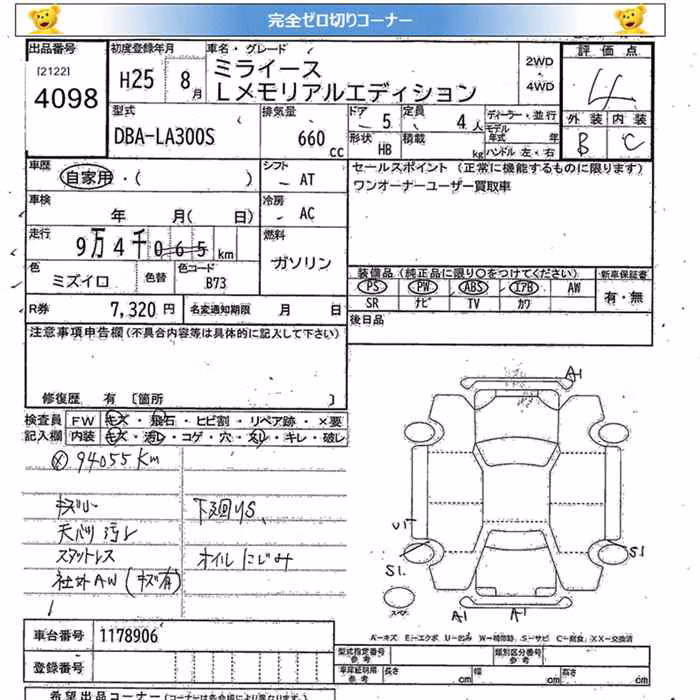 完全ゼロ切りコーナー
出品番号 初度登録年月 車名・グレード 評価点
[2122]
4098
H25 8月
ミライース
Lメモリアルエディション
2WD
4WD
4
外装 内装
B C
型式 排気量 ドア 5 定員 4人 ディーラー・並行
DBA-LA300S 660cc
モデル年式 年
形状 HB 積載 kg ハンドル 左・右
車歴 自家用・( ) シフト AT
セールスポイント (正常に機能するものに限ります)
ワンオーナーユーザー買取車
車検 年 月( 日) 冷房 AC
走行 9万4千065km 燃料 ガソリン
色 ミズイロ 色替 色コード B73
装備品(純正品に限り○をつけてください) 新車保証書
PS PW ABS エアB AW 有・無
SR ナビ TV カワ
R券 7,320円 名変通知期限 月 日
後日品
注意事項申告欄(不具合内容等は具体的に記入して下さい)
修復歴 有 〔箇所 〕
検査員 FW キズ・飛石・ヒビ割・リペア跡・×要
記入欄 内装 キズ・汚レ・コゲ・穴・スレ・キレ・破レ
94055Km
キズ小 下廻りS
天張汚レ
スタットレス オイルにじみ
社外AW(キズ有)
A1
UT
S1. S1
A1 A1
A-キズ E-エクボ U-凹み W-補修跡 S-サビ C-腐食 XX-交換済
車台番号 1178906
型式指定番号 参考 類別区分番号 参考
車庫証明用 参考 長さ cm 幅 cm 高さ cm
登録番号
希望出品コーナー(コーナーは各会場により異なります)